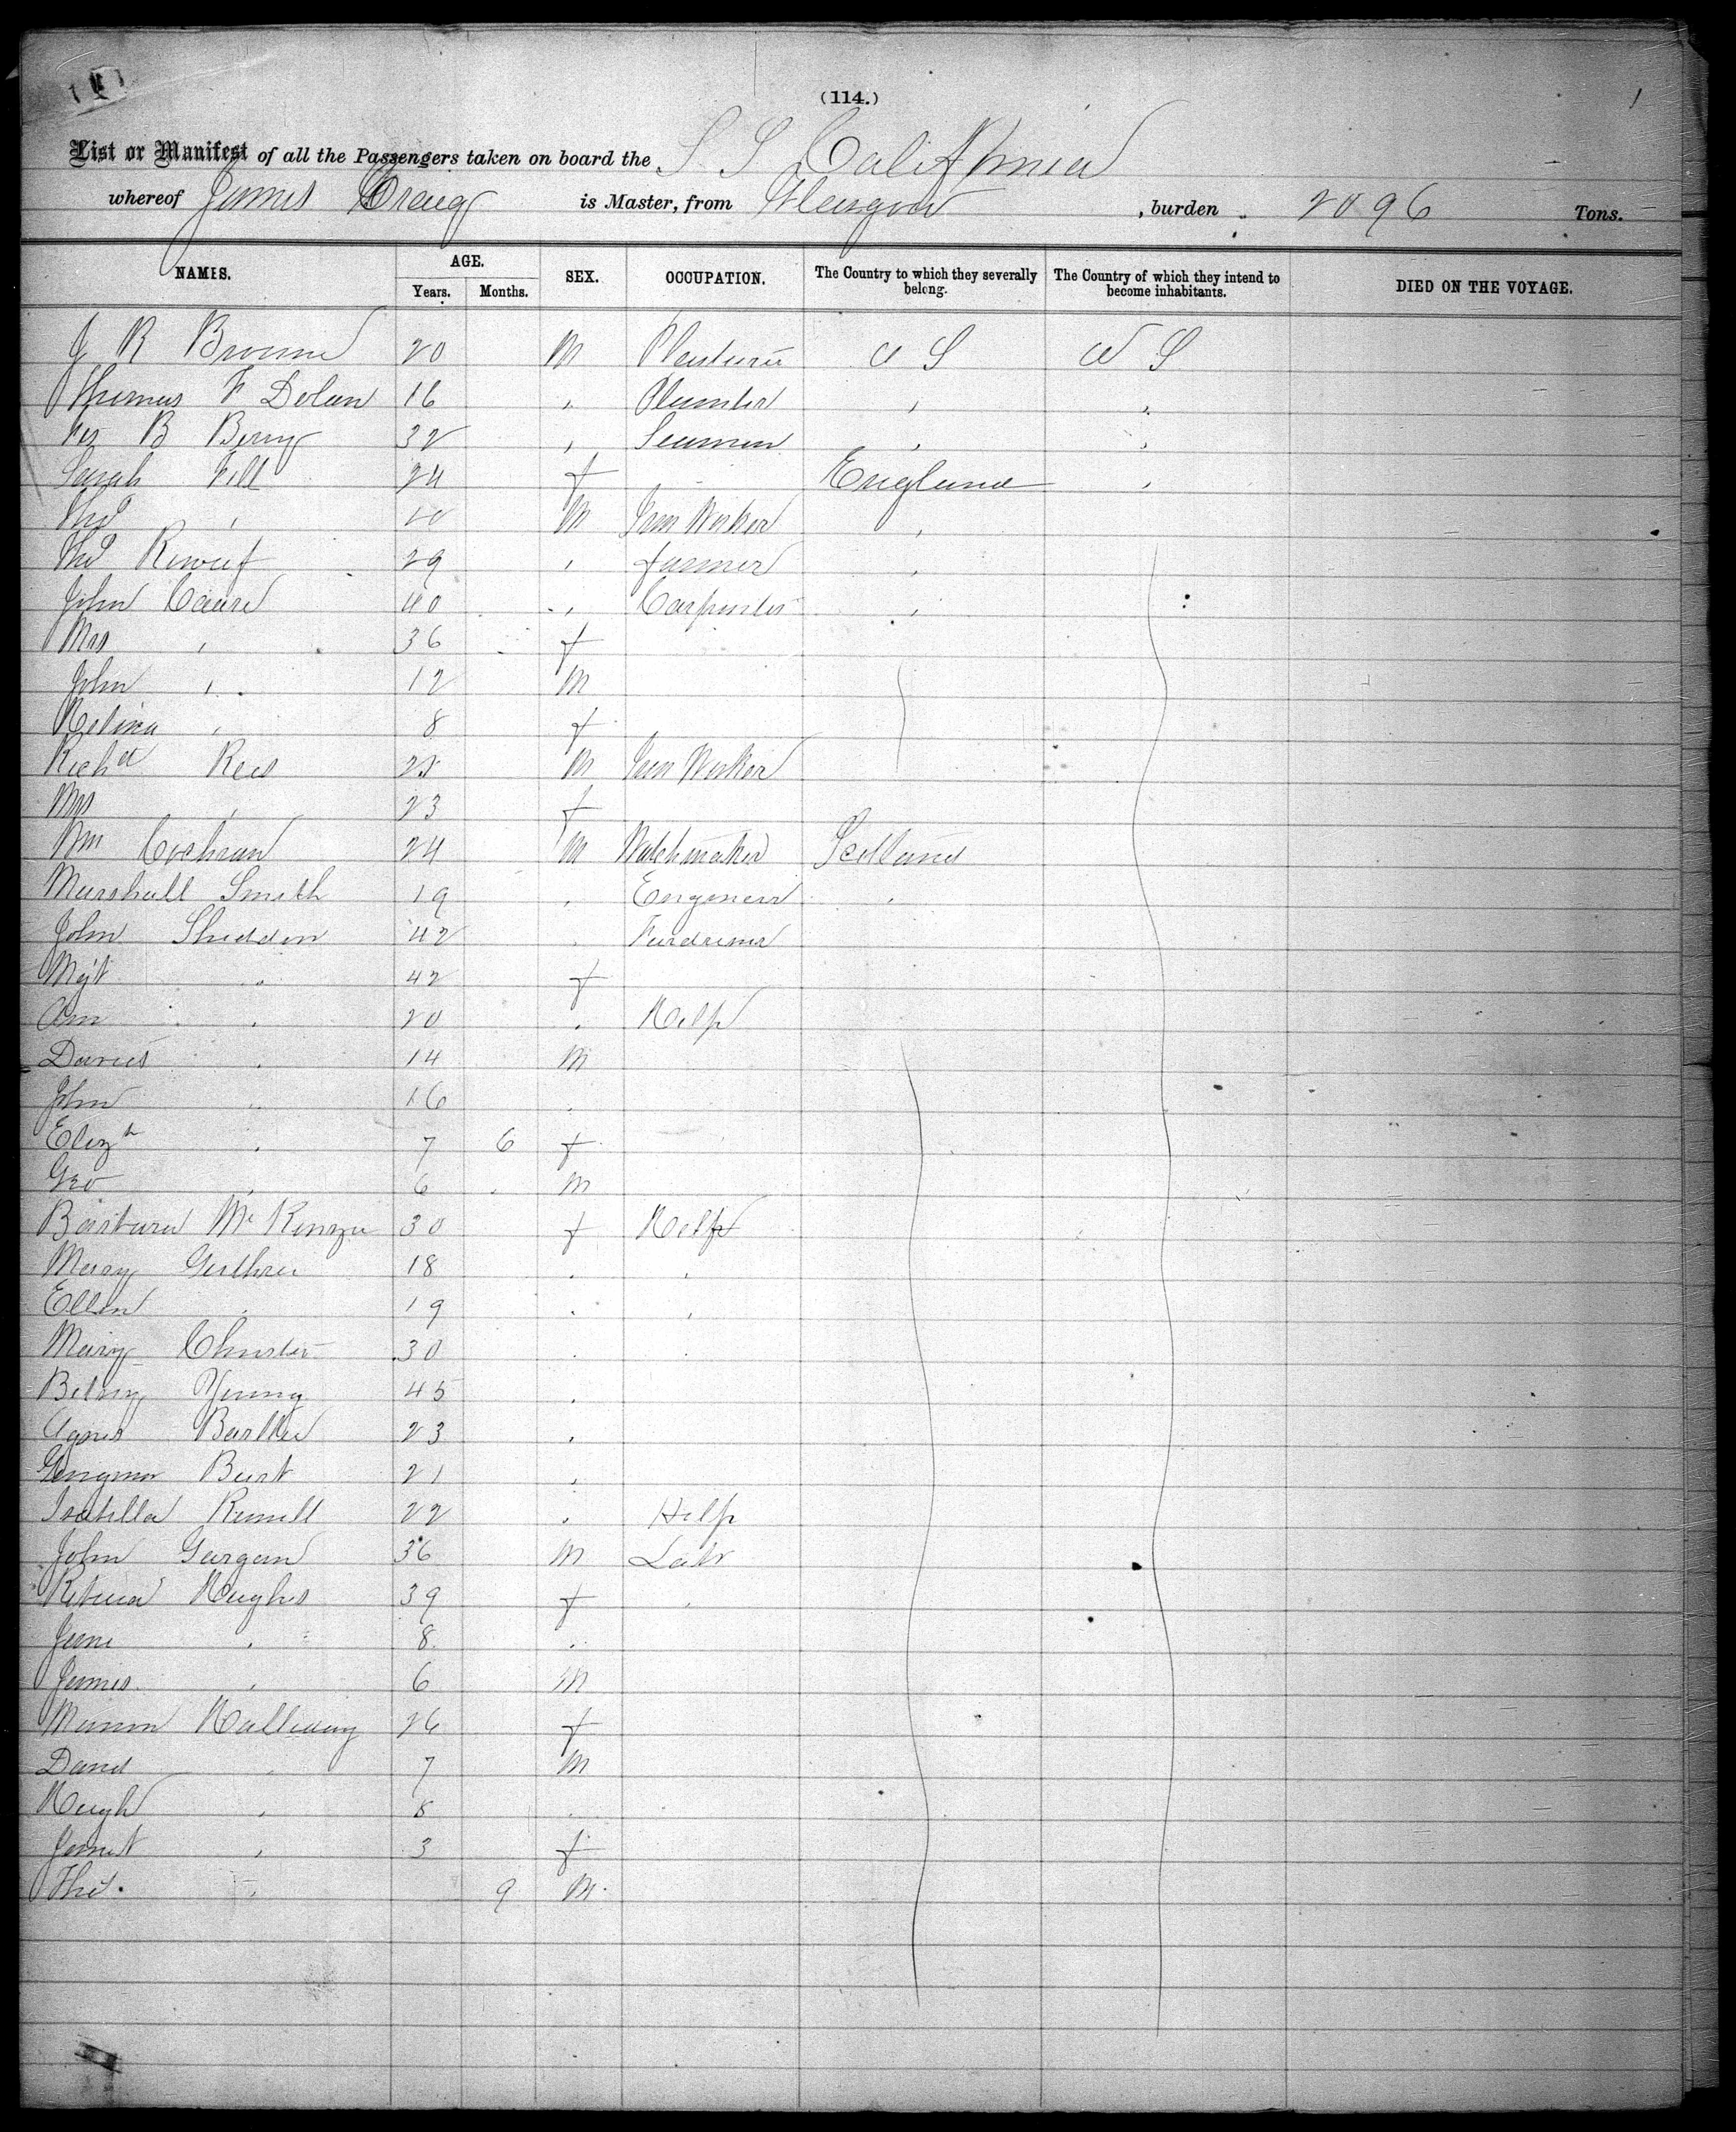 (114.)
List or Manifest of all the Passengers taken on board the S S California
whereof James Craig is Master, from Glasgow , burden 2096 Tons.
NAMES. AGE. Years. Months. SEX. OCCUPATION. The Country to which they severally belong. The Country of which they intend to become inhabitants. DIED ON THE VOYAGE.
J R Brown 20 M Plasterer U S U S
Thomas F Dolan 16 " Plumber " "
B Berry 32 " Seaman " "
Sarah 24 f England "
Thos " 20 M Iron Worker "
Thos 29 " farmer "
John 40 " Carpenter "
Mrs " 36 f
John " 12 M
" 8 f
Richd Rees M Iron Worker
Mrs " 23 f
Wm Cochran 24 M Watchmaker Scotland
Marshall Smith 19 " Engineer "
John Sheddon 42 "
Mgt " 42 f
Ann " 20 " Help
" 14 M
John " 16 "
Elizth " 7 6 f
Geo " 6 M
Barbara McKenzie 30 f Help
Mary Guthrie 18 " "
Ellen " 19 " "
Mary 30 " "
Betsey Young 45 "
Agnes 23 "
21 "
Isabella 22 " Help
John Gargan 36 M Labr
Hughes 39 f "
Jane " 8 "
James " 6 M
Marion Halliday 26 f
David " 7 M
Hugh " "
Janet " 3 f
Thos. " 9 M